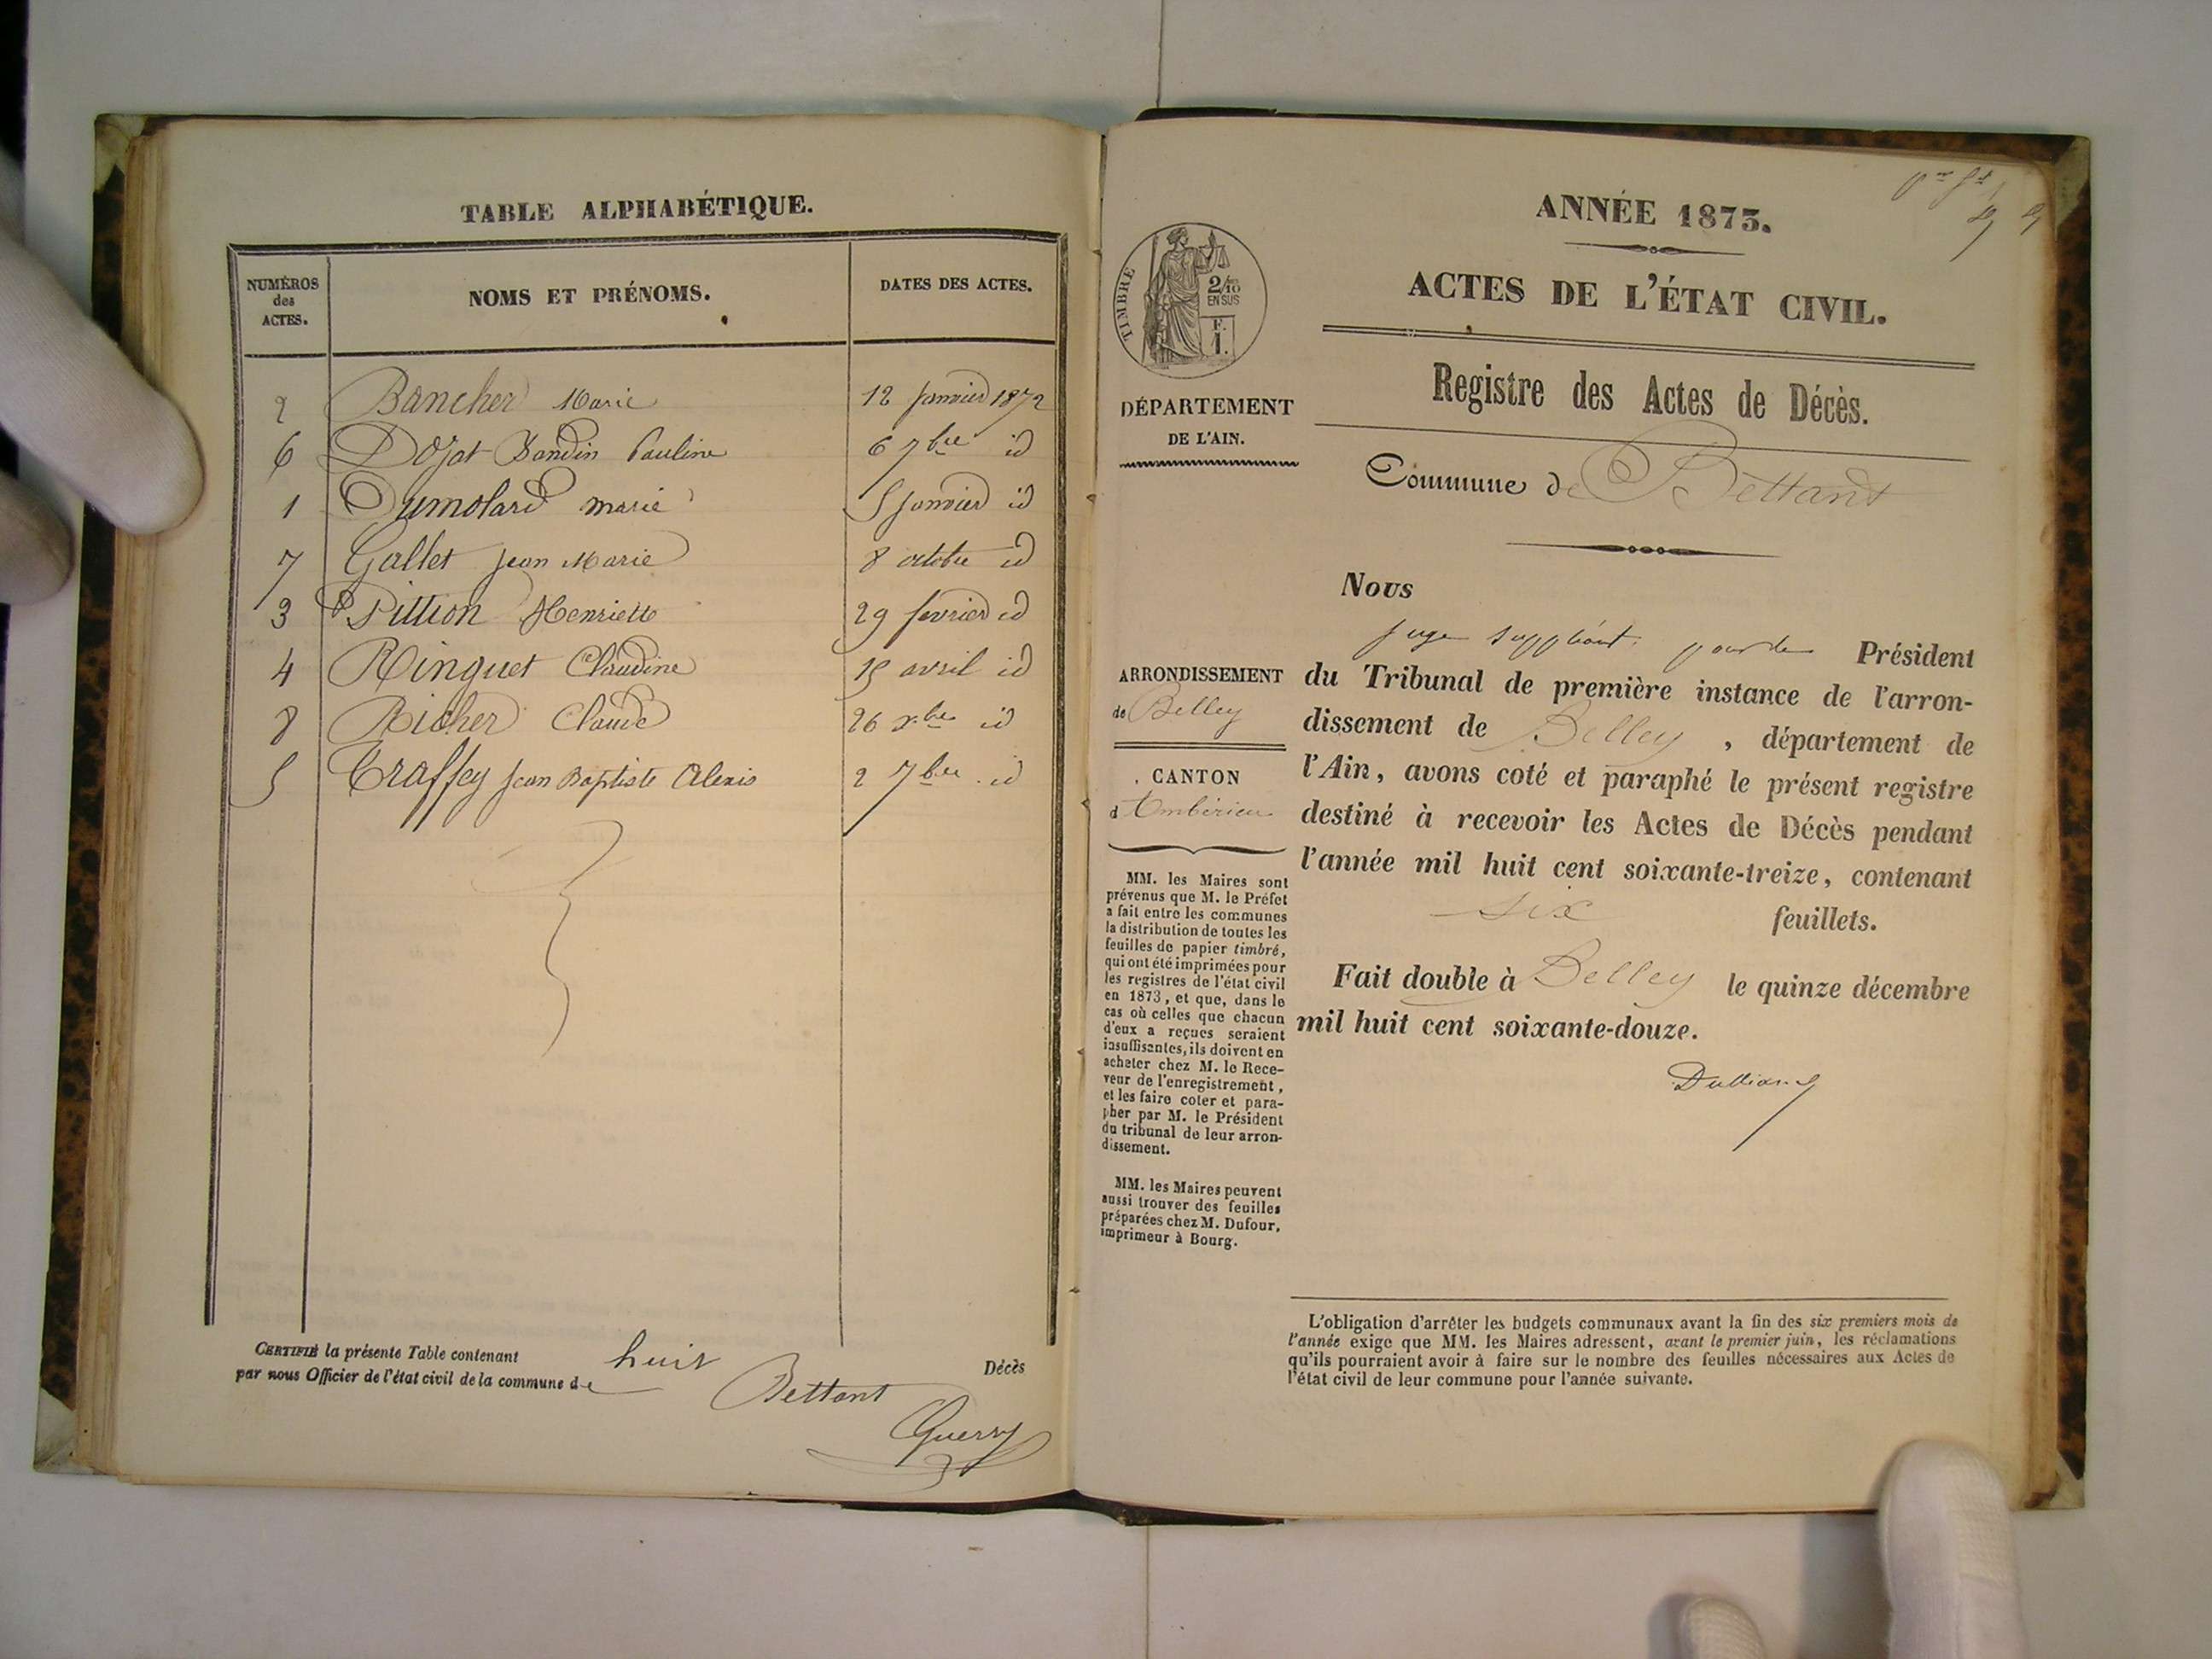 TABLE ALPHABÉTIQUE.
NUMÉROS
des
ACTES.
NOMS ET PRÉNOMS.
DATES DES ACTES.
2 Bancher Marie 12 janvier 1872
6 Dojat Bandin Pauline 6 7bre id
1 Dumolard marie 5 janvier id
7 Gallet Jean Marie 8 octobre id
3 Pittion Henriette 29 fevrier id
4 Ringuet Claudine 15 avril id
8 Richer Claude 26 xbre id
5 Traffey Jean Baptiste Alexis 2 7bre id
CERTIFIÉ la présente Table contenant huit Décès
par nous Officier de l'état civil de la commune de Bettant
Guerry
ANNÉE 1873.
ACTES DE L'ÉTAT CIVIL.
TIMBRE
2/10
EN SUS
F.
1.
DÉPARTEMENT
DE L'AIN.
Registre des Actes de Décès.
Commune de Bettant
ARRONDISSEMENT
de Belley
CANTON
d'Ambérieu
MM. les Maires sont
prévenus que M. le Préfet
a fait entre les communes
la distribution de toutes les
feuilles de papier timbré,
qui ont été imprimées pour
les registres de l'état civil
en 1873, et que, dans le
cas où celles que chacun
d'eux a reçues seraient
insuffisantes, ils doivent en
acheter chez M. le Rece-
veur de l'enregistrement,
et les faire coter et para-
pher par M. le Président
du tribunal de leur arron-
dissement.
MM. les Maires peuvent
aussi trouver des feuilles
préparées chez M. Dufour,
imprimeur à Bourg.
Nous
juge suppléant pour le Président
du Tribunal de première instance de l'arron-
dissement de Belley, département de
l'Ain, avons coté et paraphé le présent registre
destiné à recevoir les Actes de Décès pendant
l'année mil huit cent soixante-treize, contenant
six feuillets.
Fait double à Belley le quinze décembre
mil huit cent soixante-douze.
L'obligation d'arrêter les budgets communaux avant la fin des six premiers mois de
l'année exige que MM. les Maires adressent, avant le premier juin, les réclamations
qu'ils pourraient avoir à faire sur le nombre des feuilles nécessaires aux Actes de
l'état civil de leur commune pour l'année suivante.